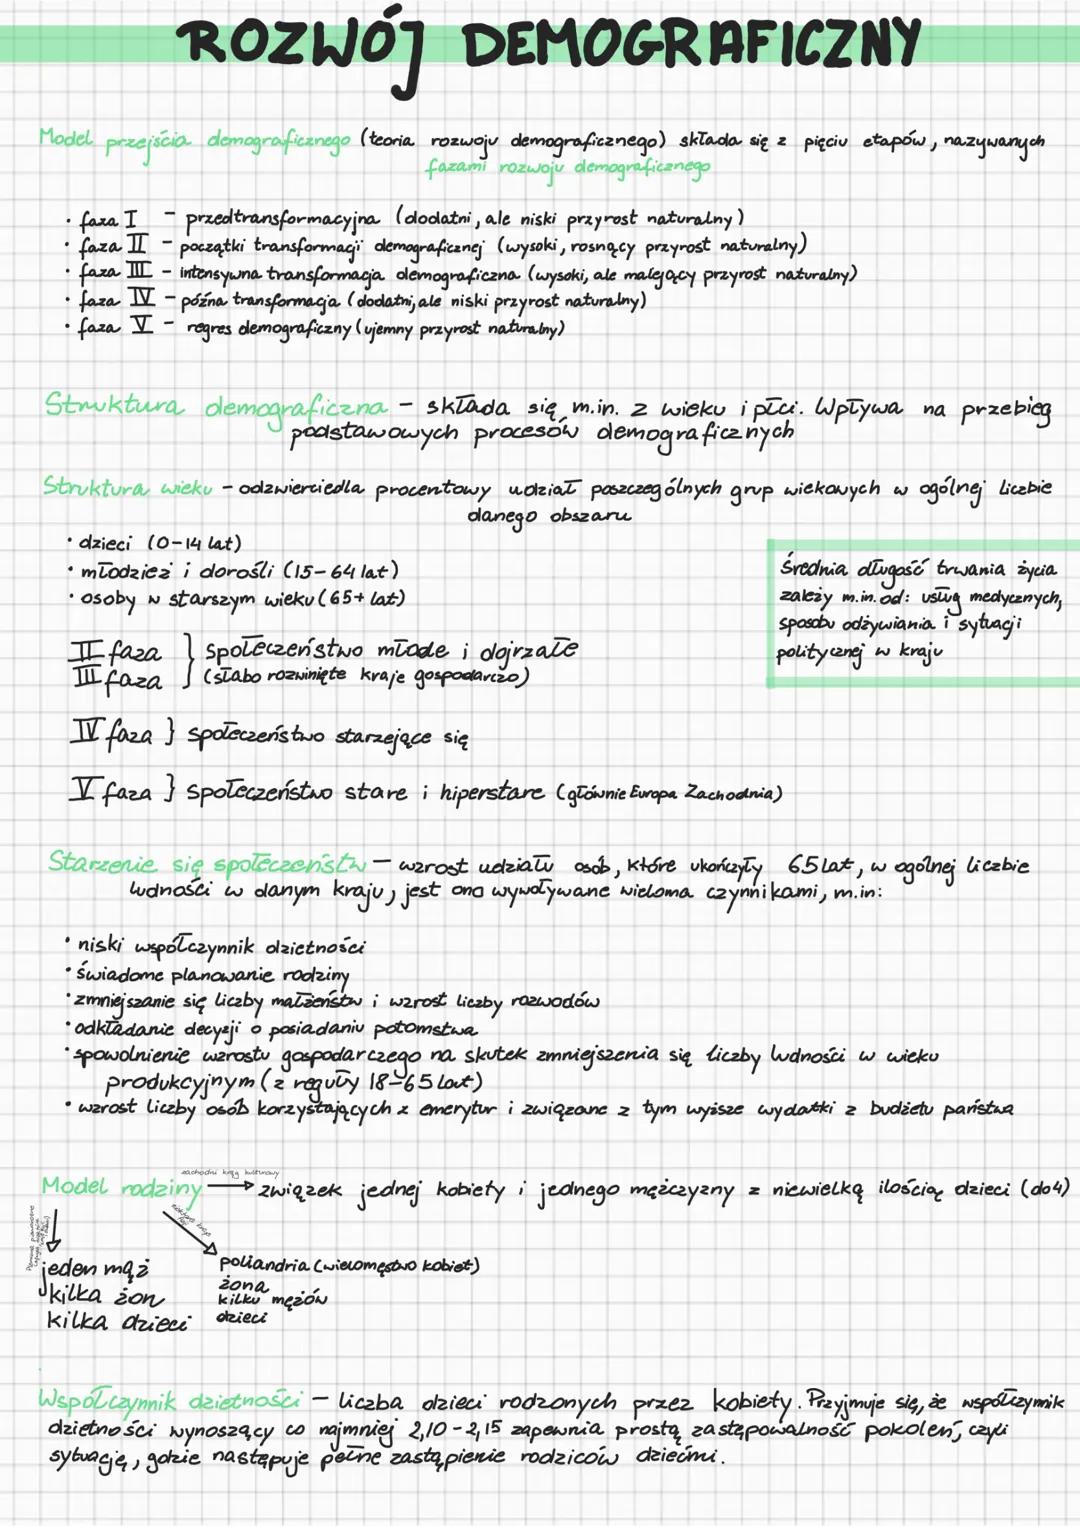 ROZWÓJ DEMOGRAFICZNY
Model przejścia demograficznego (teoria rozwoju demograficznego) składa się z pięciu etapów, nazywanych
fazami rozwoju demograficznego
• faza I - przedtransformacyjna (dodatni, ale niski przyrost naturalny)
• faza II - początki transformacji demograficznej (wysoki, rosnący przyrost naturalny)
• faza III - intensywna transformacja demograficzna (wysoki, ale malejący przyrost naturalny)
• faza IV - późna transformacja (dodatni, ale niski przyrost naturalny)
• faza V - regres demograficzny (ujemny przyrost naturalny)
Struktura demograficzna - składa się m.in. z wieku i płci. Wpływa na przebieg
podstawowych procesów demograficznych
Struktura wieku - odzwierciedla procentowy udział poszczególnych grup wiekowych w ogólnej liczbie
danego obszaru
• dzieci (0-14 lat)
• młodzież i dorośli (15-64 lat)
• osoby w starszym wieku (65+ lat)
Średnia długość trwania życia
zależy m.in. od: usług medycznych,
sposobu odżywiania i sytuacji
politycznej w kraju
II faza } społeczeństwo młode i dojrzałe
III faza (słabo rozwinięte kraje gospodarczo)
IV faza } społeczeństwo starzejące się
V faza } społeczeństwo stare i hiperstare (głównie Europa Zachodnia)
Starzenie się społeczeństw - wzrost udziału osób, które ukończyły 65 lat, w ogólnej liczbie
ludności w danym kraju, jest ono wywoływane wieloma czynnikami, m.in:
• niski współczynnik dzietności
• świadome planowanie rodziny
• zmniejszanie się liczby małżeństw i wzrost liczby rozwodów
• odkładanie decyzji o posiadaniu potomstwa
• spowolnienie wzrostu gospodarczego na skutek zmniejszenia się liczby ludności w wieku
produkcyjnym (z reguły 18-65 lat)
• wzrost liczby osób korzystających z emerytur i związane z tym wyższe wydatki z budżetu państwa
zachodni krąg kulturowy
Model rodziny → związek jednej kobiety i jednego mężczyzny z niewielką ilością dzieci (do 4)
jeden mąż
kilka żon
kilka dzieci
poliandria (wielomęstwo kobiet)
żona
kilku mężów
dzieci
Współczynnik dzietności - liczba dzieci rodzonych przez kobiety. Przyjmuje się, że współczynnik
dzietności wynoszący co najmniej 2,10-2,15 zapewnia prostą zastępowalność pokoleń, czyli
sytuację, gdzie następuje pełne zastąpienie rodziców dziećmi.